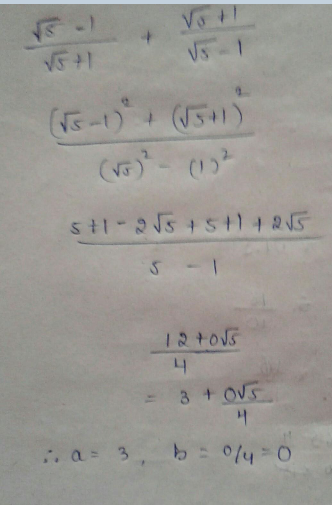 (√5 - 1)/(√5 + 1) + (√5 + 1)/(√5 - 1)
((√5 - 1)² + (√5 + 1)²)/((√5)² - (1)²)
(5+1 - 2√5 + 5+1 + 2√5)/(5 - 1)
(12 + 0√5)/4
= 3 + 0√5/4
∴ a = 3, b = 0/4 = 0